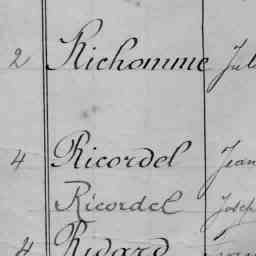 2 Richomme Jul
4 Ricordel Jean
Ricordel Josep
4 Rivard